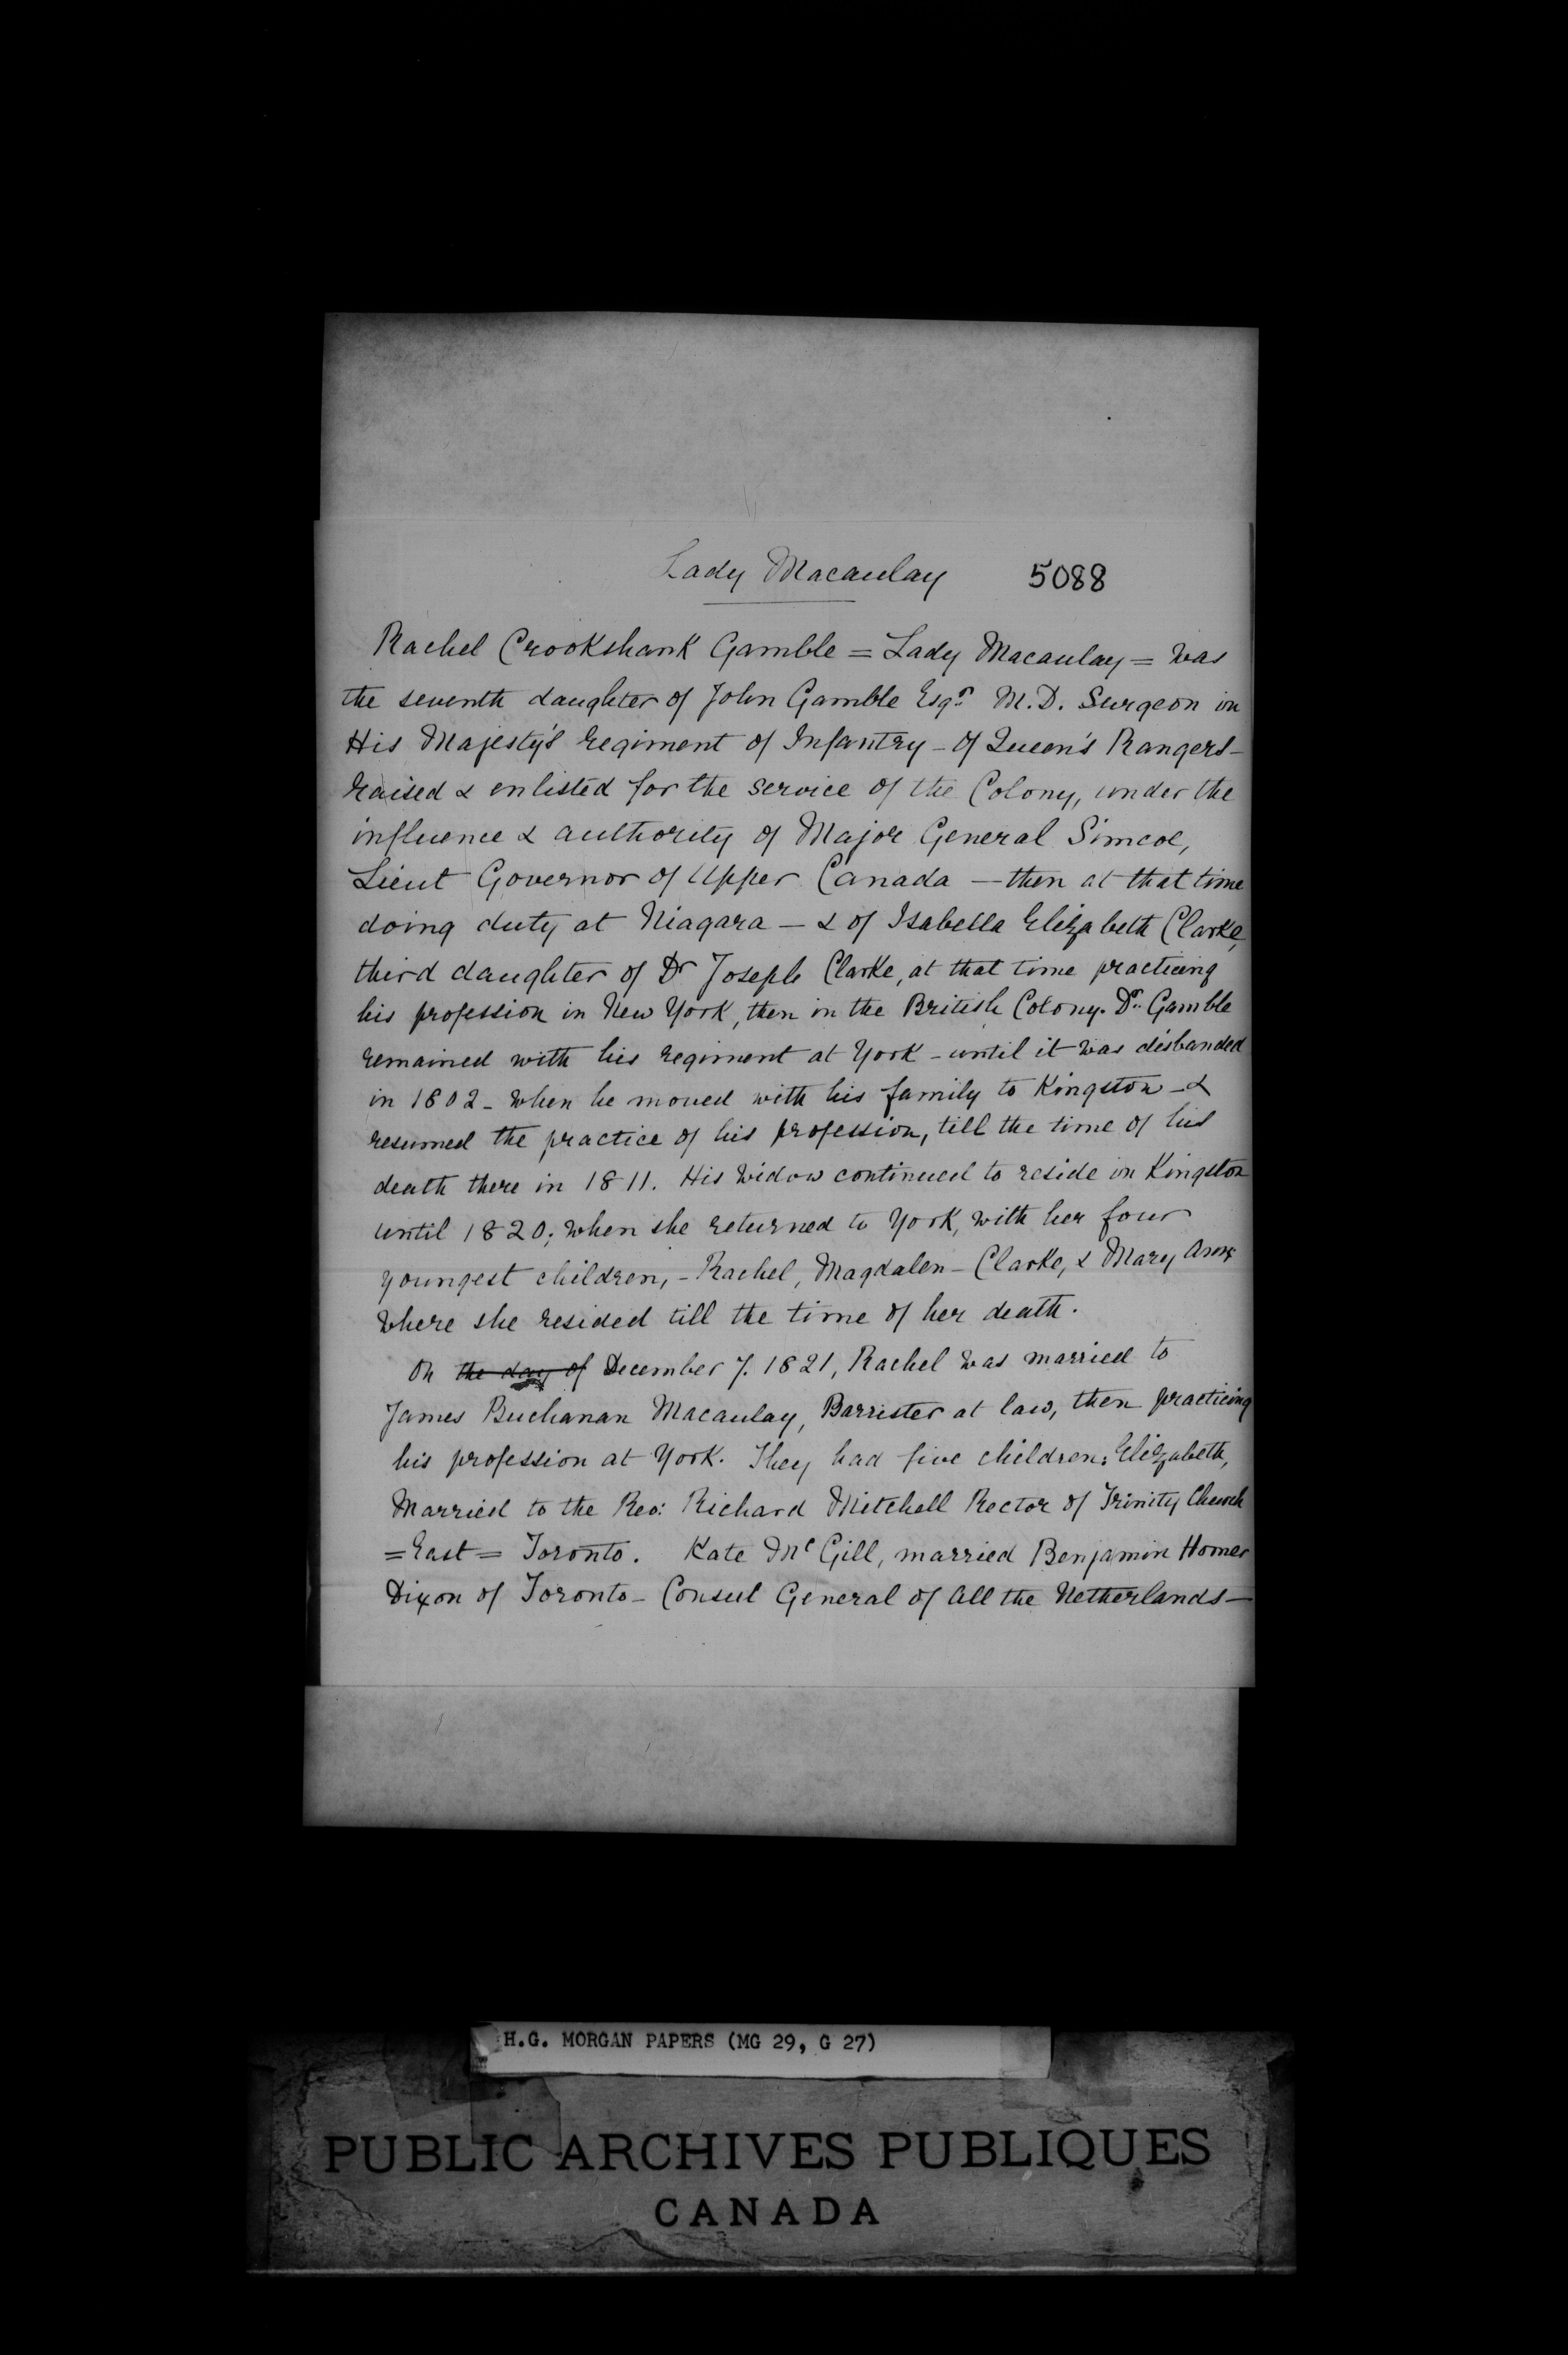 Lady Macaulay 5088
Rachel Crookshank Gamble = Lady Macaulay = was
the seventh daughter of John Gamble Esqr. M.D. Surgeon in
His Majesty's regiment of Infantry - of Queen's Rangers -
raised & enlisted for the service of the Colony, under the
influence & authority of Major General Simcoe,
Lieut Governor of Upper Canada — then at that time
doing duty at Niagara — & of Isabella Elizabeth Clarke,
third daughter of Dr Joseph Clarke, at that time practicing
his profession in New York, then in the British Colony. Dr. Gamble
remained with his regiment at York - until it was disbanded
in 1802 - when he moved with his family to Kingston - &
resumed the practice of his profession, till the time of his
death there in 1811. His widow continued to reside in Kingston
until 1820; when she returned to York, with her four
youngest children, - Rachel, Magdalen - Clarke, & Mary Ann;
where she resided till the time of her death.
On the day of December 7. 1821, Rachel was married to
James Buchanan Macaulay, Barrister at law, then practicing
his profession at York. They had five children: Elizabeth,
Married to the Rev: Richard Mitchell Rector of Trinity Church
= East = Toronto. Kate Mc Gill, married Benjamin Homer
Dixon of Toronto - Consul General of All the Netherlands —
H.G. MORGAN PAPERS (MG 29, G 27)
PUBLIC ARCHIVES PUBLIQUES
CANADA